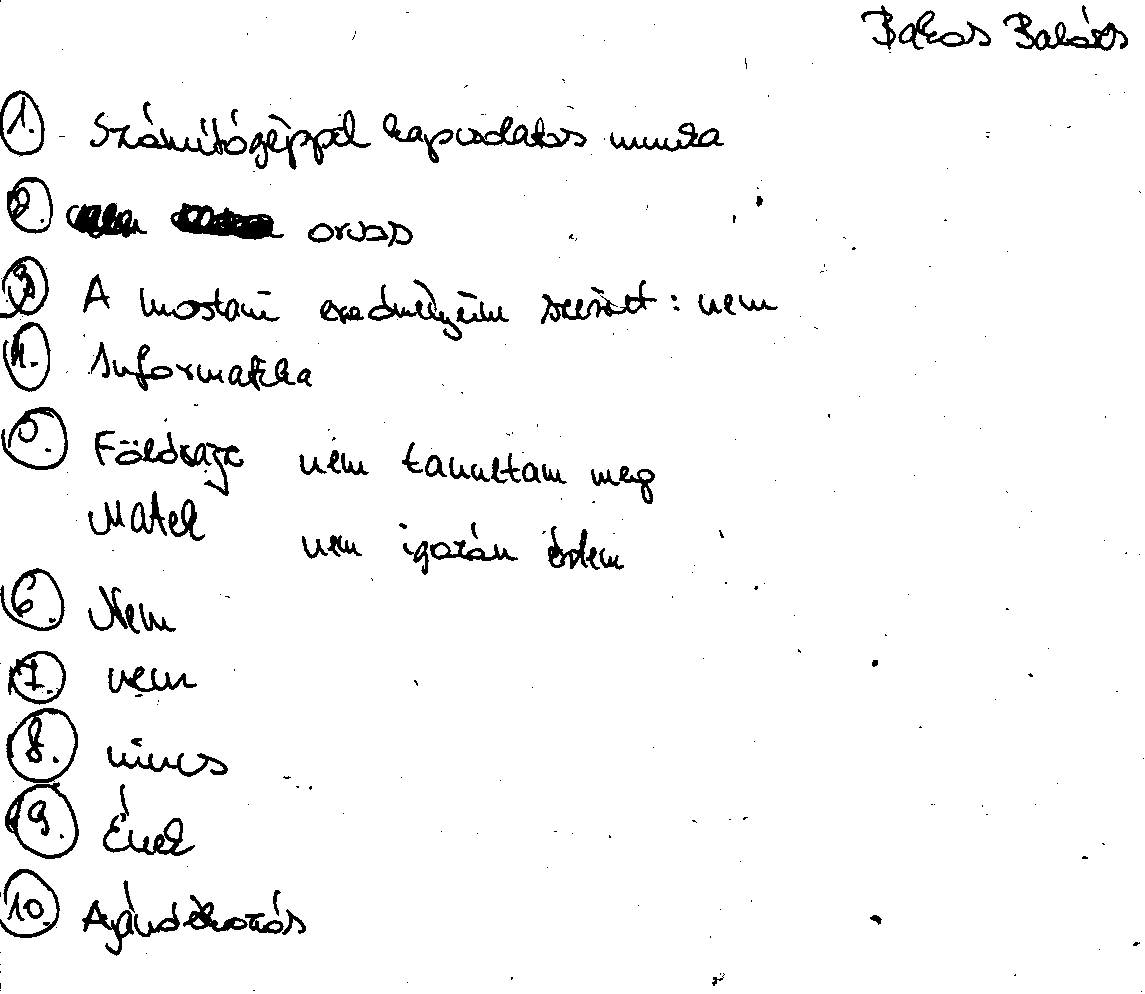 Bakos Balázs
1. Számítógéppel kapcsolatos munka
2. orvos
3. A mostani eredményeim szerint: nem
4. Informatika
5. Földrajz nem tanultam meg
Matek nem igazán értem
6. Nem
7. nem
8. nincs
9. Ének
10. Ajándékozás